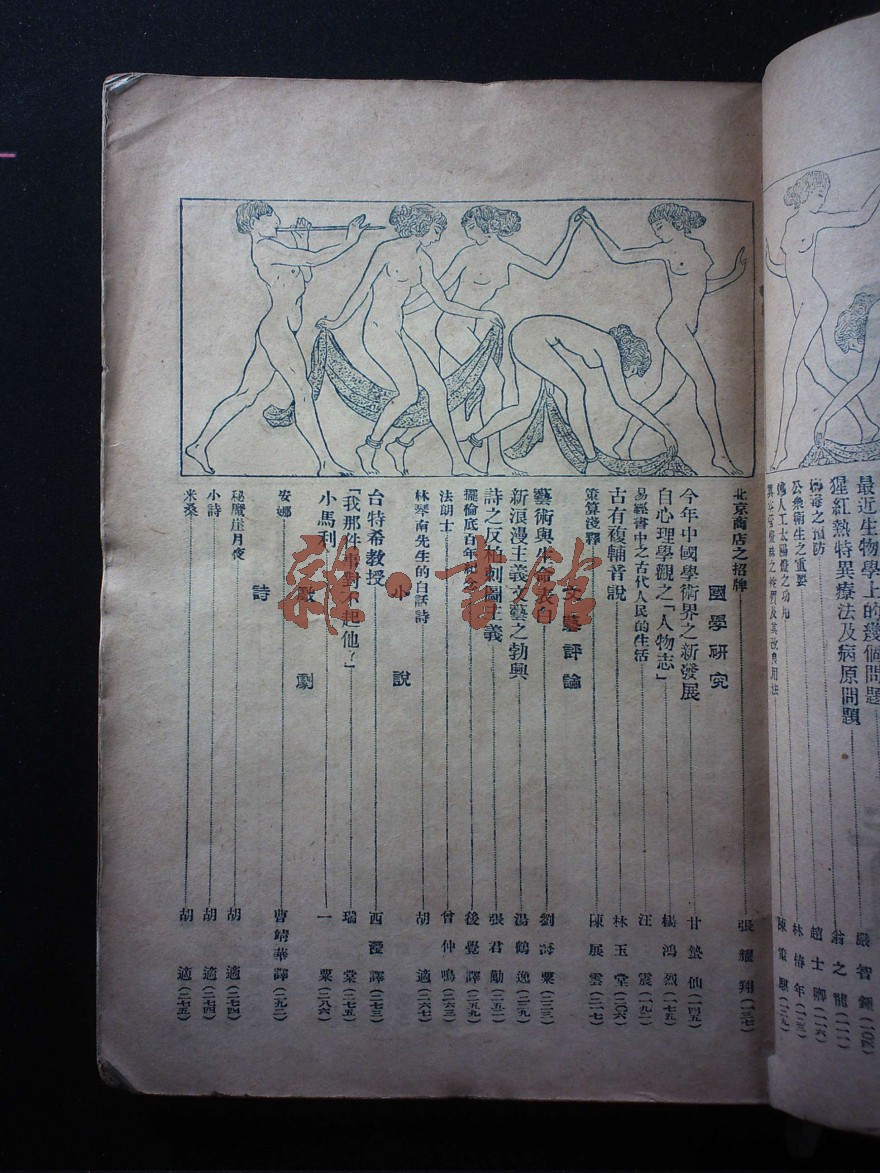 最近生物學上的幾個問題 嚴智鍾(一〇五)
猩紅熱特異療法及病原問題 翁之龍(一一一)
梅毒之預防 趙士卿(一一六)
公衆衛生之重要 林椿年(一二三)
人工太陽燈之功用 陳策(一二九)
北京商店之招牌 張耀翔(一三七)
國學研究
今年中國學術界之新發展 甘蟄仙(一四五)
自心理學觀之「人物志」 楊鴻烈(一七五)
易經書中之古代人民的生活 汪震(一九一)
古有複輔音說 林玉堂(二〇六)
策算淺釋 陳展雲(二一七)
文藝評論
藝術與生命表白 劉海粟(二三三)
新浪漫主義文藝之勃興 湯鶴逸(二三九)
詩之反柏刺圖主義 張君勱(二五二)
擺倫底百年紀念 後覺譯(二五九)
法朗士 曾仲鳴(二六三)
林琴南先生的白話詩 胡適(二六七)
小說
台特希教授 西瀅譯(二七三)
「我那件事對不起他?」 瑞棠(二七五)
小馬利 一粟(二八六)
戲劇
安娜 曹靖華譯(二九二)
詩
秘魔崖月夜 胡適(二七四)
小詩 胡適(二七四)
米桑 胡適(二七五)
雜·書館